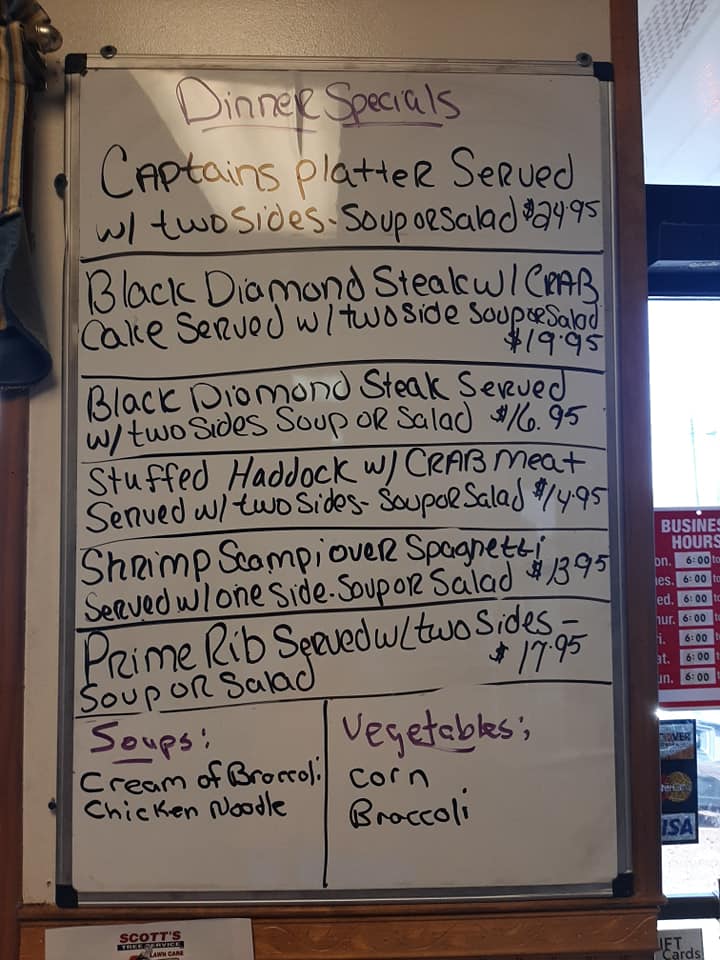 Dinner Specials
Captains Platter Served
w/ two sides - Soup or Salad $24.95
Black Diamond Steak w/ CRAB
Cake Served w/ two side Soup or Salad
$19.95
Black Diamond Steak Served
w/ two Sides Soup OR Salad $16.95
Stuffed Haddock w/ CRAB meat
Served w/ two Sides - Soup or Salad $14.95
Shrimp Scampi over Spaghetti
Served w/ one Side - Soup OR Salad $13.95
Prime Rib Served w/ two Sides -
Soup OR Salad $17.95
Soups:
Cream of Broccoli
Chicken Noodle
Vegetables:
Corn
Broccoli
BUSINE
HOURS
on. 6:00 to
es. 6:00 to
ed. 6:00 to
hur. 6:00 to
i. 6:00 to
at. 6:00 to
un. 6:00 to
OVER
ISA
IFT
Cards
SCOTT'S
TREE SERVICE
LAWN CARE